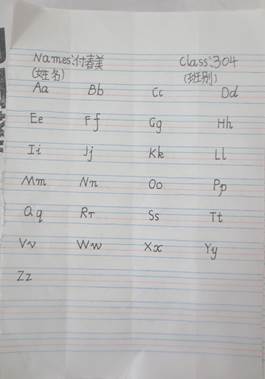 Names:付春美 Class:304
(姓名) (班别)
Aa Bb Cc Dd
Ee Ff Gg Hh
Ii Jj Kk Ll
Mm Nn Oo Pp
Qq Rr Ss Tt
Vv Ww Xx Yy
Zz